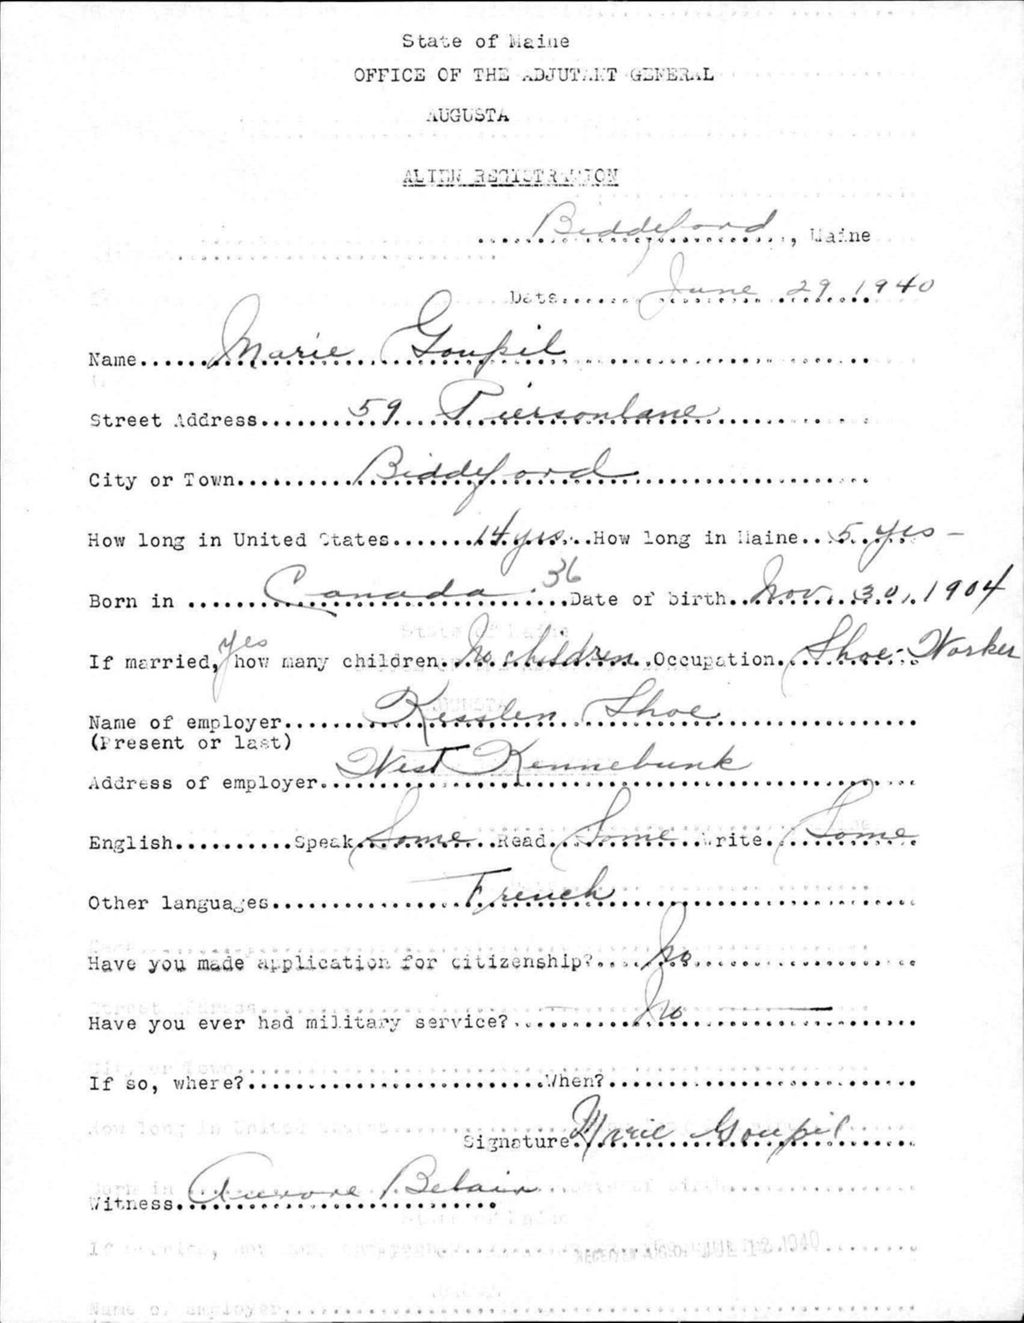 State of Maine
OFFICE OF THE ADJUTANT GENERAL
AUGUSTA
ALIEN REGISTRATION
Biddeford, Maine
Date June 29, 1940
Name Marie Goupil
Street Address 59 Piersonlane
City or Town Biddeford
How long in United States 14 yrs. How long in Maine 5 yrs -
Born in Canada 36 Date of birth Nov. 30, 1904
If married, yes how many children No children Occupation Shoe-Worker
Name of employer Kesslen Shoe
(Present or last)
Address of employer West Kennebunk
English Speak Some Read Some Write Some
Other languages French
Have you made application for citizenship? No
Have you ever had military service? No
If so, where? When?
Signature Marie Goupil
Witness Aurore Belair
RECEIVED A.G.O. JUL 12 1940